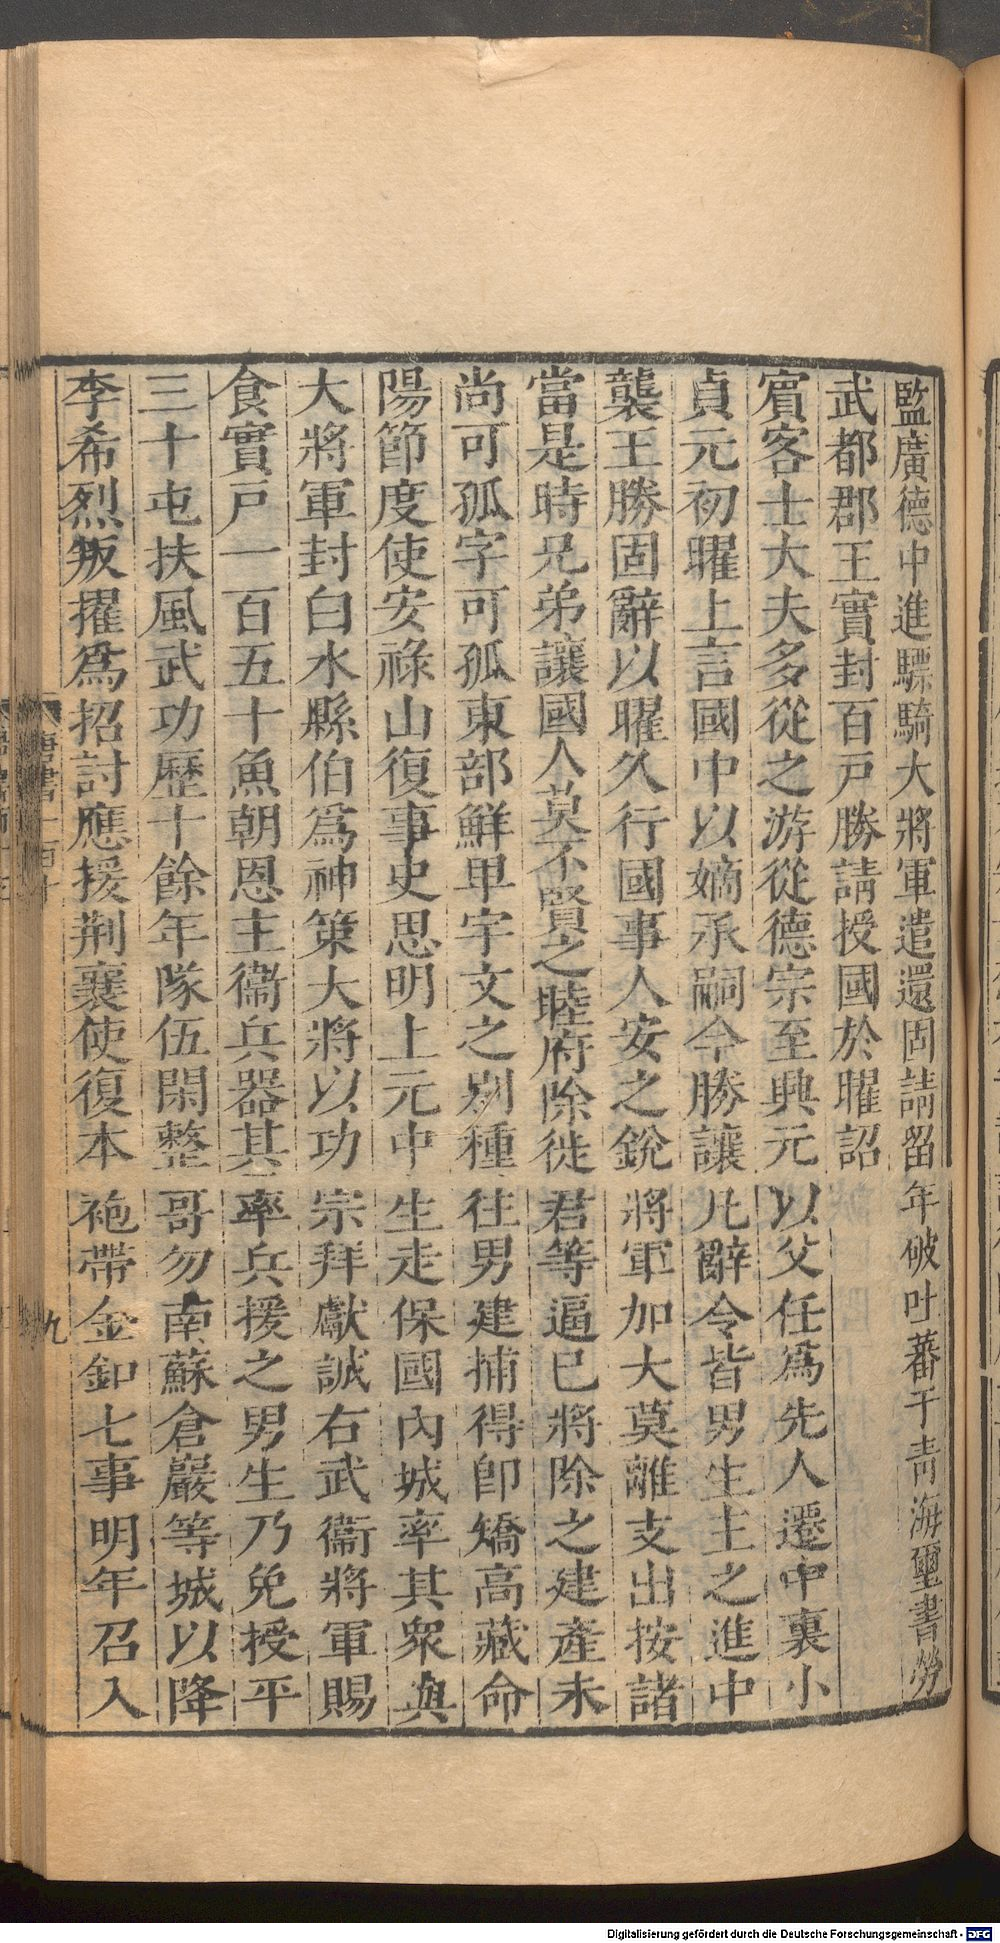 監廣德中進驃騎大將軍遣還固請留年破吐蕃于青海璽書勞
武都郡王實封百戸勝請授國於曜詔
賓客士大夫多從之游從德宗至興元以父任爲先人遷中裏小
貞元初曜上言國中以嫡承嗣今勝讓兄辭令皆男生主之進中
襲王勝固辭以曜久行國事人安之銳將軍加大莫離支出按諸
當是時兄弟讓國人莫不賢之睦府除徙君等逼已將除之建產未
尚可孤字可孤東部鮮卑宇文之别種往男建捕得卽矯高藏命
陽節度使安祿山復事史思明上元中生走保國內城率其衆與
大將軍封白水縣伯爲神策大將以功宗拜獻誠右武衞將軍賜
食實戸一百五十魚朝恩主衞兵器其率兵援之男生乃免授平
三十屯扶風武功歷十餘年隊伍閑整哥勿南蘇倉巖等城以降
李希烈叛擢爲招討應援荆襄使復本袍帶金釦七事明年召入
唐書一百十
九
Digitalisierung gefördert durch die Deutsche Forschungsgemeinschaft - DFG